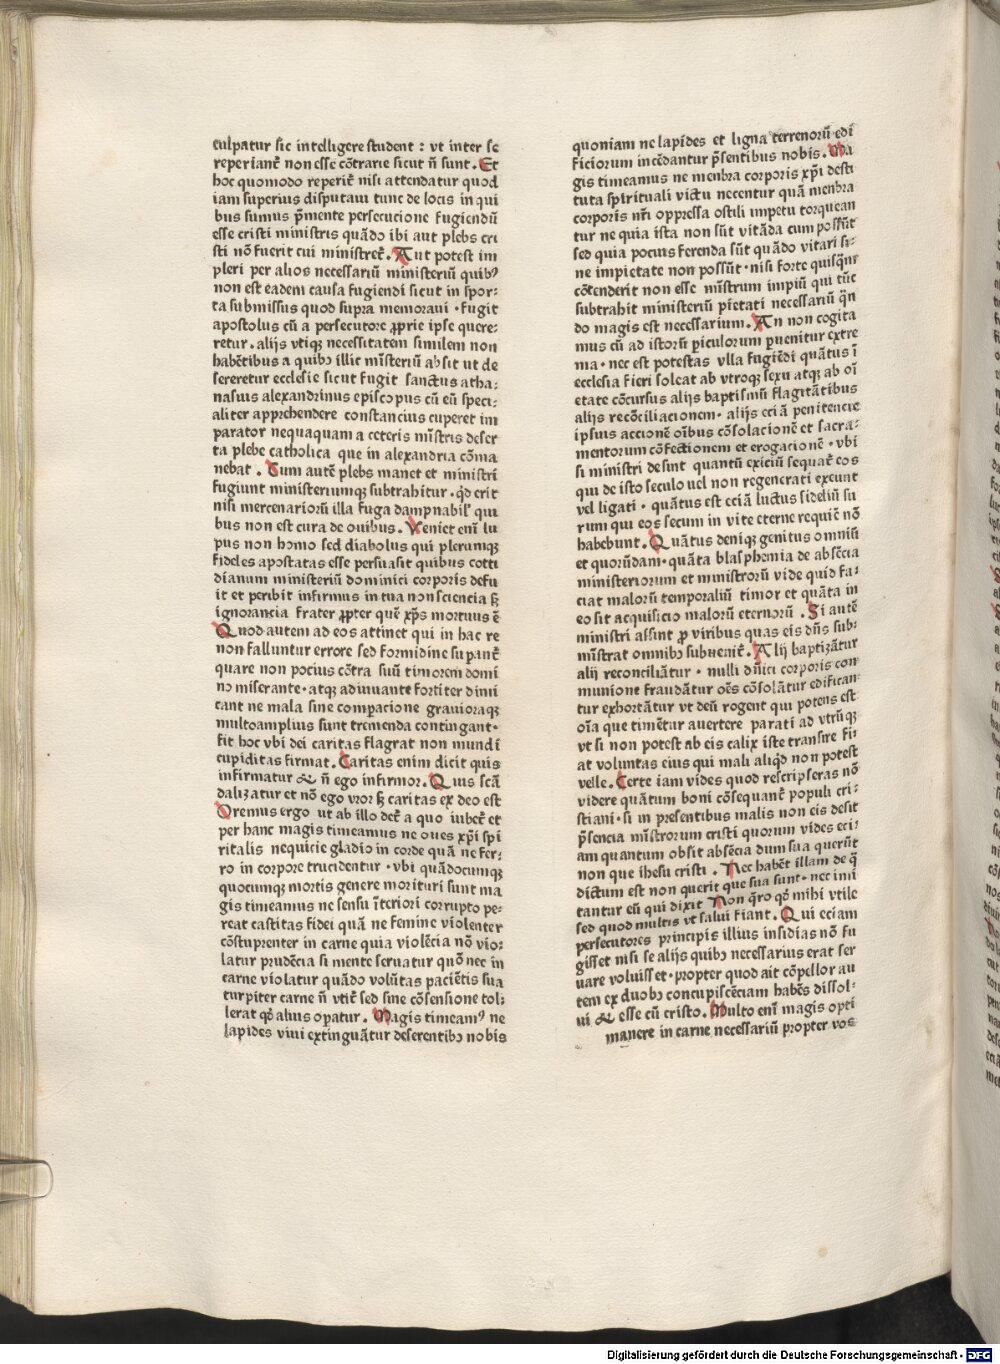 culpatur sic intelligere student : vt inter se
reperianť non esse cōtrarie sicut ñ sunt . Et
hoc quomodo reperiť nisi attendatur quod
iam superius disputaui tunc de locis in qui
bus sumus p̄mente persecucione fugiendū
esse cristi ministris quādo ibi aut plebs cri
sti nō fuerit cui ministreť . Aut potest im
pleri per alios necessariū ministeriū quibꝰ
non est eadem causa fugiendi sicut in spor⸗
ta submissus quod supra memoraui · fugit
apostolus cū a persecutore ꝓprie ipse quere⸗
retur . alijs vtiqꝫ necessitatem similem non
habētibus a quibꝫ illic mīsteriū absit ut de
sereretur ecclesie sicut fugit sanctus atha⸗
nasius alexandrinus episcopus cū eū speci⸗
aliter apprehendere constancius cuperet im
parator nequaquam a ceteris mīstris deser
ta plebe catholica que in alexandria cōma
nebat . Cum autē plebs manet et ministri
fugiunt ministeriumqꝫ subtrahitur . qd̄ erit
nisi mercenariorū illa fuga dampnabił qui
bus non est cura de ouibus . Veniet enī lu
pus non homo sed diabolus qui plerumqꝫ
fideles apostatas esse persuasit quibus cotti
dianum ministeriū dominici corporis defu
it et peribit infirmus in tua nonsciencia ꝭ
ignorancia frater ꝓpter quē xp̄s mortuus ē
Quod autem ad eos attinet qui in hac re
non falluntur errore sed formidine supanť
quare non pocius cōtra suū timorem domi
no miserante · atqꝫ adiuuante fortiter dimi
cant ne mala sine compacione grauioraqꝫ
multoamplius sunt tremenda contingant·
Fit hoc vbi dei caritas flagrat non mundi
cupiditas firmat . Caritas enim dicit quis
infirmatur & ñ ego infirmor . Quis scā
dalizatur et nō ego vror ꝭ caritas ex deo est
Oremus ergo ut ab illo deť a quo iubeť et
per hanc magis timeamus ne oues xp̄i spi
ritalis nequicie gladio in corde quā ne fer⸗
ro in corpore trucidentur · vbi quādocumqꝫ
quocumqꝫ mortis genere morituri sunt ma
gis timeamus ne sensu īteriori corrupto pe⸗
reat castitas fidei quā ne femine violenter
cōstuprenter in carne quia violēcia nō vio⸗
latur prudēcia si mente seruatur quō nec in
carne violatur quādo volūtas paciētis sua
turpiter carne ñ vtiť sed sine cōsensione tol⸗
lerat qd̄ alius opatur . Magis timeamꝰ ne
lapides viui extinguātur deserentibꝫ nobis
quoniam ne lapides et ligna terrenorū edi
ficiorum incēdantur p̄sentibus nobis . Ma
gis timeamus ne menbra corporis xp̄i desti
tuta spirituali victu necentur quā menbra
corporis nr̄i oppressa ostili impetu torquean
tur ne quia ista non sūt vitāda cum possūt
sed quia pocius ferenda sūt quādo vitari si⸗
ne impietate non possūt · nisi forte quisqm̄
cōtenderit non esse mīstrum impiū qui tūc
subtrahit ministeriū pietati necessariū qn̄
do magis est necessarium . An non cogita
mus cū ad istorū piculorum puenitur extre
ma · nec est potestas vlla fugiēdi quātus ī
ecclesia fieri soleat ab vtroqꝫ sexu atqꝫ ab oī
etate cōcursus alijs baptismū flagitātibus
alijs recōciliacionem · alijs eciā penitencie
ipsius accionē oībus cōsolacionē et sacra⸗
mentorum cōfectionem et erogacionē · vbi
si ministri desint quantū exiciū sequať eos
qui de isto seculo uel non regenerati exeunt
vel ligati · quātus est eciā luctus fideliū su
rum qui eos secum in vite eterne requiē nō
habebunt . Quātus deniqꝫ genitus omniū
et quorūdam · quāta blasphemia de absēcia
ministeriorum et ministrorū vide quid fa⸗
ciat malorū temporaliū timor et quāta in
eo sit acquisicio malorū eternorū . Si autē
ministri assint ꝓ viribus quas eis dn̄s sub⸗
mīstrat omnibꝫ subueniť . Alij baptizātur
alij reconciliātur · nulli dn̄ici corporis con
munione fraudātur oēs cōsolātur edifican⸗
tur exhortātur vt deū rogent qui potens est
oīa que timētur auertere parati ad vtrūqꝫ
vt si non potest ab eis calix iste transire fi⸗
at voluntas eius qui mali aliqd̄ non potest
velle . Certe iam vides quod rescripseras nō
videre quātum boni cōsequanť populi cri⸗
stiani · si in presentibus malis non eis desit
p̄sencia mīstrorum cristi quorum vides eci⸗
am quantum obsit absēcia dum sua querūt
non que ihesu cristi . Nec habēt illam de q̄
dictum est non querit que sua sunt · nec imi
tantur eū qui dixit Non q̄ro qd̄ mihi vtile
sed quod multis vt salui fiant . Qui eciam
persecutores principis illius insidias nō fu
gisset nisi se alijs quibꝫ necessarius erat ser
uare voluisset · propter quod ait cōpellor au
tem ex duobꝫ concupiscēciam habēs dissol⸗
ui & esse cū cristo . Multo enī magis opti
manere in carne necessariū propter vos
Digitalisierung gefördert durch die Deutsche Forschungsgemeinschaft - DFG